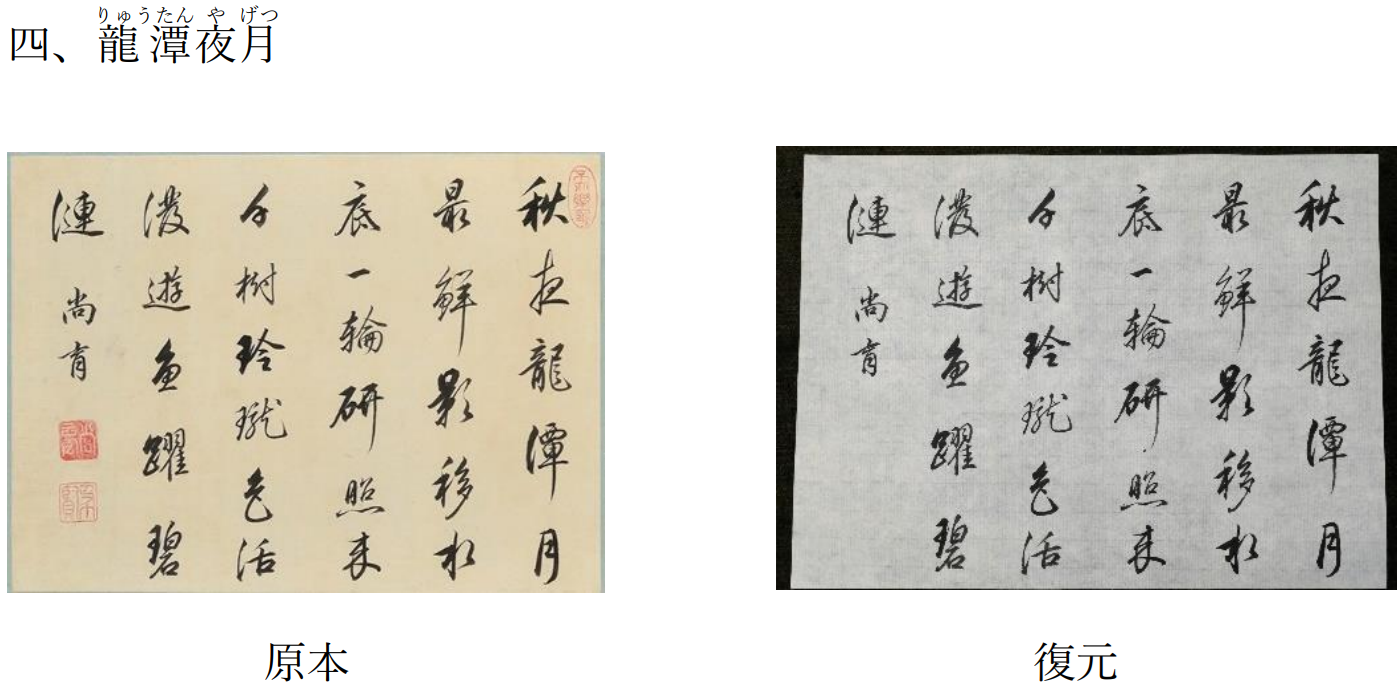 四、龍潭夜月
りゅうたんやげつ
秋夜龍潭月
最鮮影移水
底一輪研照来
千樹玲瓏色活
溌遊魚躍碧
漣 尚育
原本
秋夜龍潭月
最鮮影移水
底一輪研照来
千樹玲瓏色活
溌遊魚躍碧
漣 尚育
復元